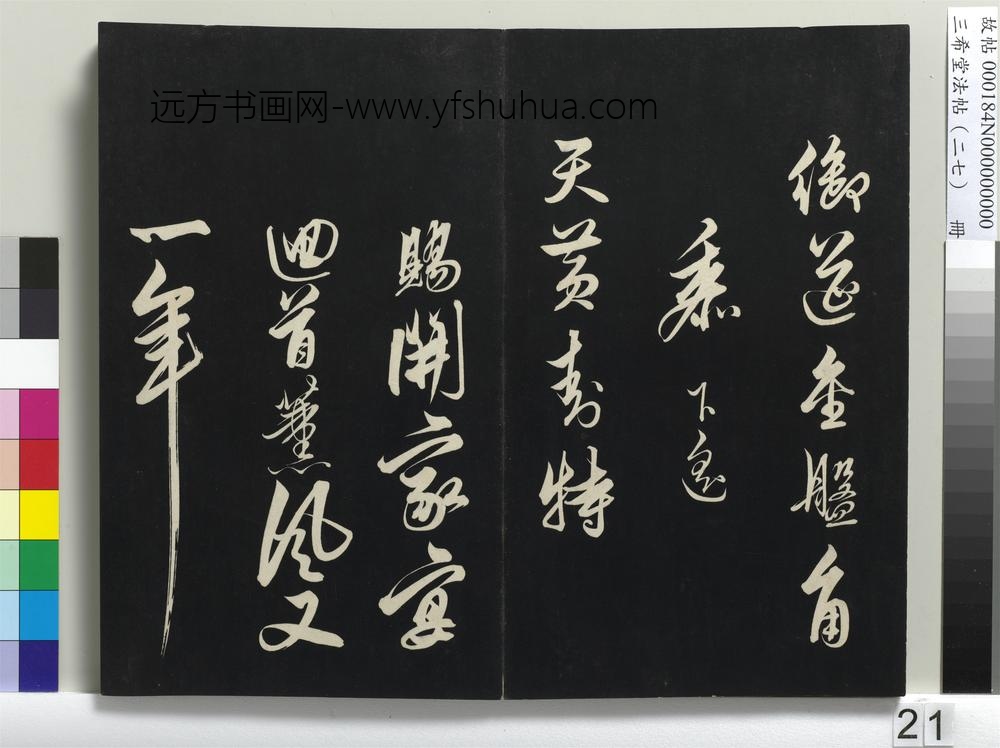 御筵金盤角
黍下遙
天黃封特
賜開家宴
迴首薰風又
一年
远方书画网-www.yfshuhua.com
故帖 000184N000000000
三希堂法帖(二七) 冊
21